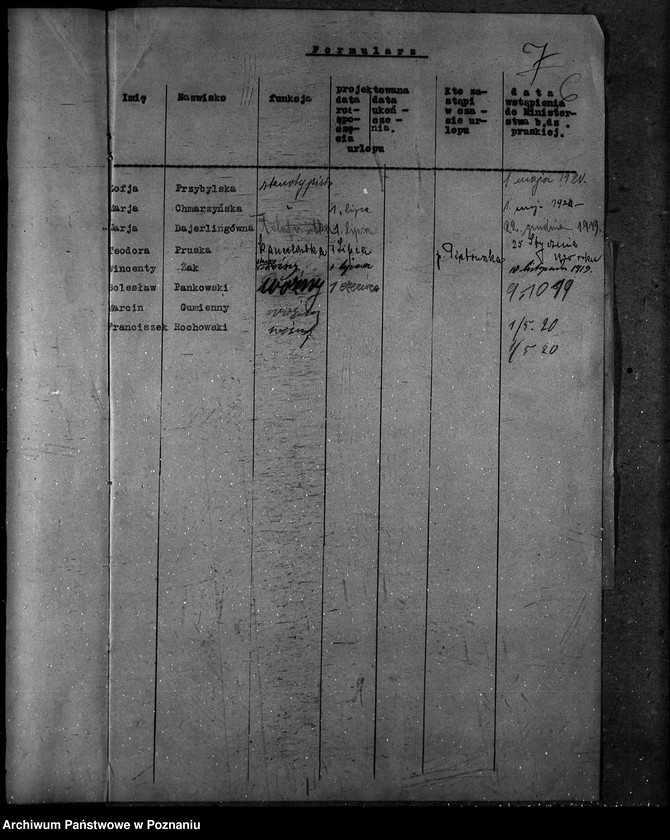 Formularz
7
6
Imię Nazwisko funkcja projektowana data rozpoczęcia data ukończenia. urlopu Kto zastąpi w czasie urlopu data wstąpienia do Ministerstwa b.dz. pruskiej.
Zofja Przybylska stenotypistka 1 maja 1920.
Marja Chmarzyńska " 1. lipca 1 maj 1920
Marja Dajerlingówna 1. lipca 22. grudnia 1919.
Teodora Pruska kancelistka 1 Lipca 25 Stycznia 1920 roku
Wincenty Żak woźny 1 lipca 10 listopada 1919.
Bolesław Pankowski woźny 1 czerwca 9.10 19
Marcin Gumienny woźny 1/5. 20
Franciszek Rochowski woźny 1/5 20
Archiwum Państwowe w Poznaniu